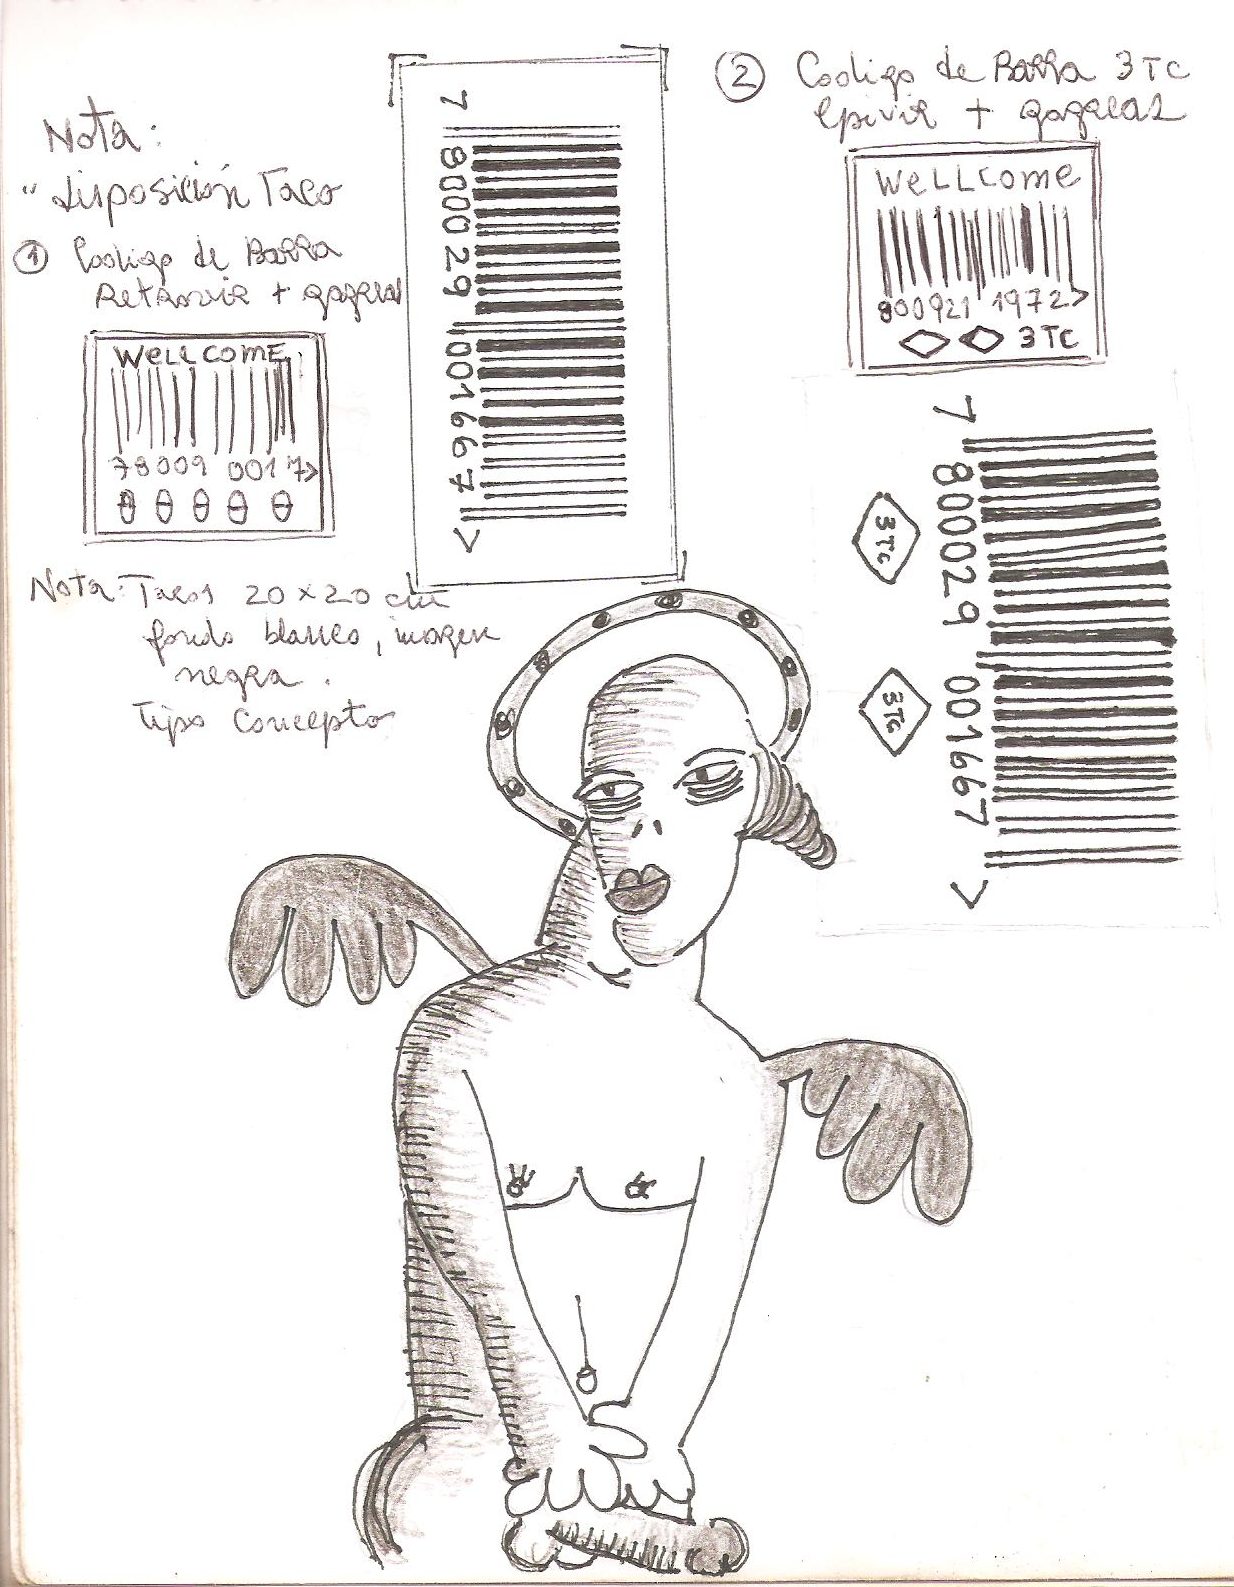 Nota:
"disposición Taco
① Codigo de Barra
Retrovir + grageas
WELLCOME
78009 0017>
Nota: Tacos 20 x 20 cm
fondo blanco, imagen
negra.
tipo concepto
7 800029 001667 >
② Codigo de Barra 3TC
epivir + grageas
WELLCOME
800921 1972>
3TC
7 800029 001667 >
3TC
3TC